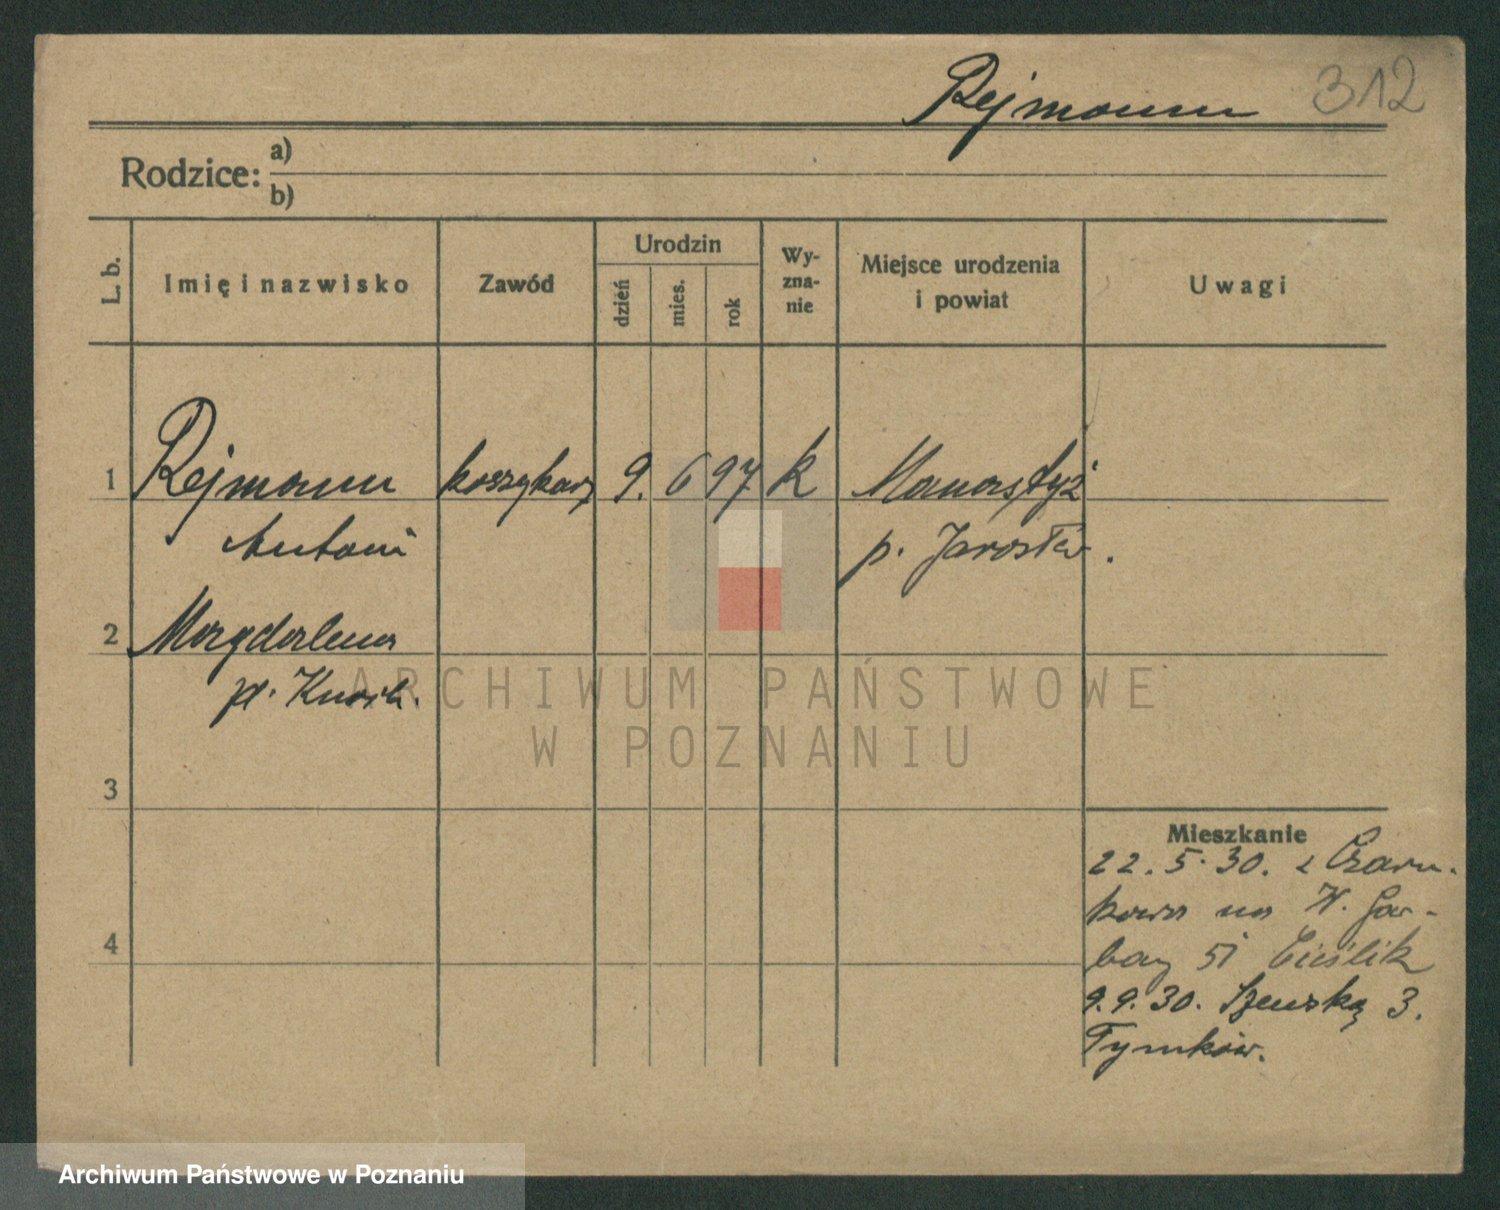 Rejmann 312
Rodzice: a)
b)
L. b.
Imię i nazwisko
Zawód
Urodzin
dzień
mies.
rok
Wy-
zna-
nie
Miejsce urodzenia
i powiat
Uwagi
1 Rejmann koszykarz 9. 6 97 k Manastyż
Antoni p. Jarosław.
2 Magdalena
3
4
Mieszkanie
22. 5. 30. z Czarn-
kowa na W. Gar-
bary 51 Cieślik
9.9.30. Szewska 3.
Tymków.
ARCHIWUM PAŃSTWOWE
W POZNANIU
Archiwum Państwowe w Poznaniu